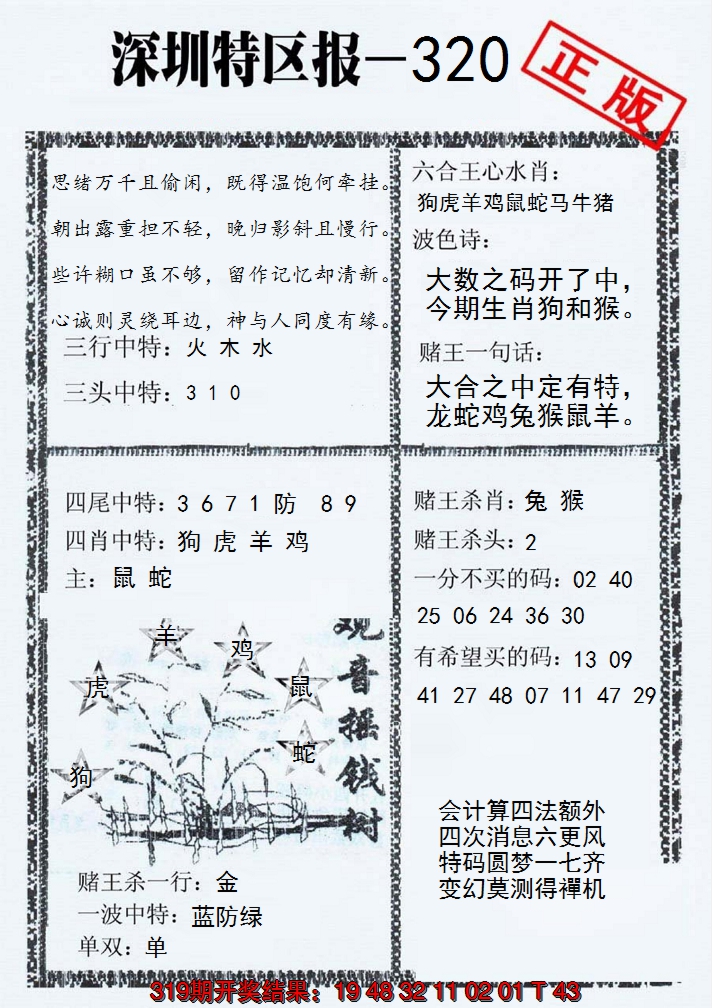 深圳特区报—320
正版
思绪万千且偷闲，既得温饱何牵挂。
朝出露重担不轻，晚归影斜且慢行。
些许糊口虽不够，留作记忆却清新。
心诚则灵绕耳边，神与人同度有缘。
三行中特：火 木 水
三头中特：3 1 0
六合王心水肖：
狗虎羊鸡鼠蛇马牛猪
波色诗：
大数之码开了中，
今期生肖狗和猴。
赌王一句话：
大合之中定有特，
龙蛇鸡兔猴鼠羊。
四尾中特：3 6 7 1 防 8 9
四肖中特：狗 虎 羊 鸡
主：鼠 蛇
羊
鸡
虎
鼠
蛇
狗
观音摇钱树
赌王杀一行：金
一波中特：蓝防绿
单双：单
赌王杀肖：兔 猴
赌王杀头：2
一分不买的码：02 40
25 06 24 36 30
有希望买的码：13 09
41 27 48 07 11 47 29
会计算四法额外
四次消息六更风
特码圆梦一七齐
变幻莫测得禪机
319期开奖结果：19 48 32 11 02 01 T 43